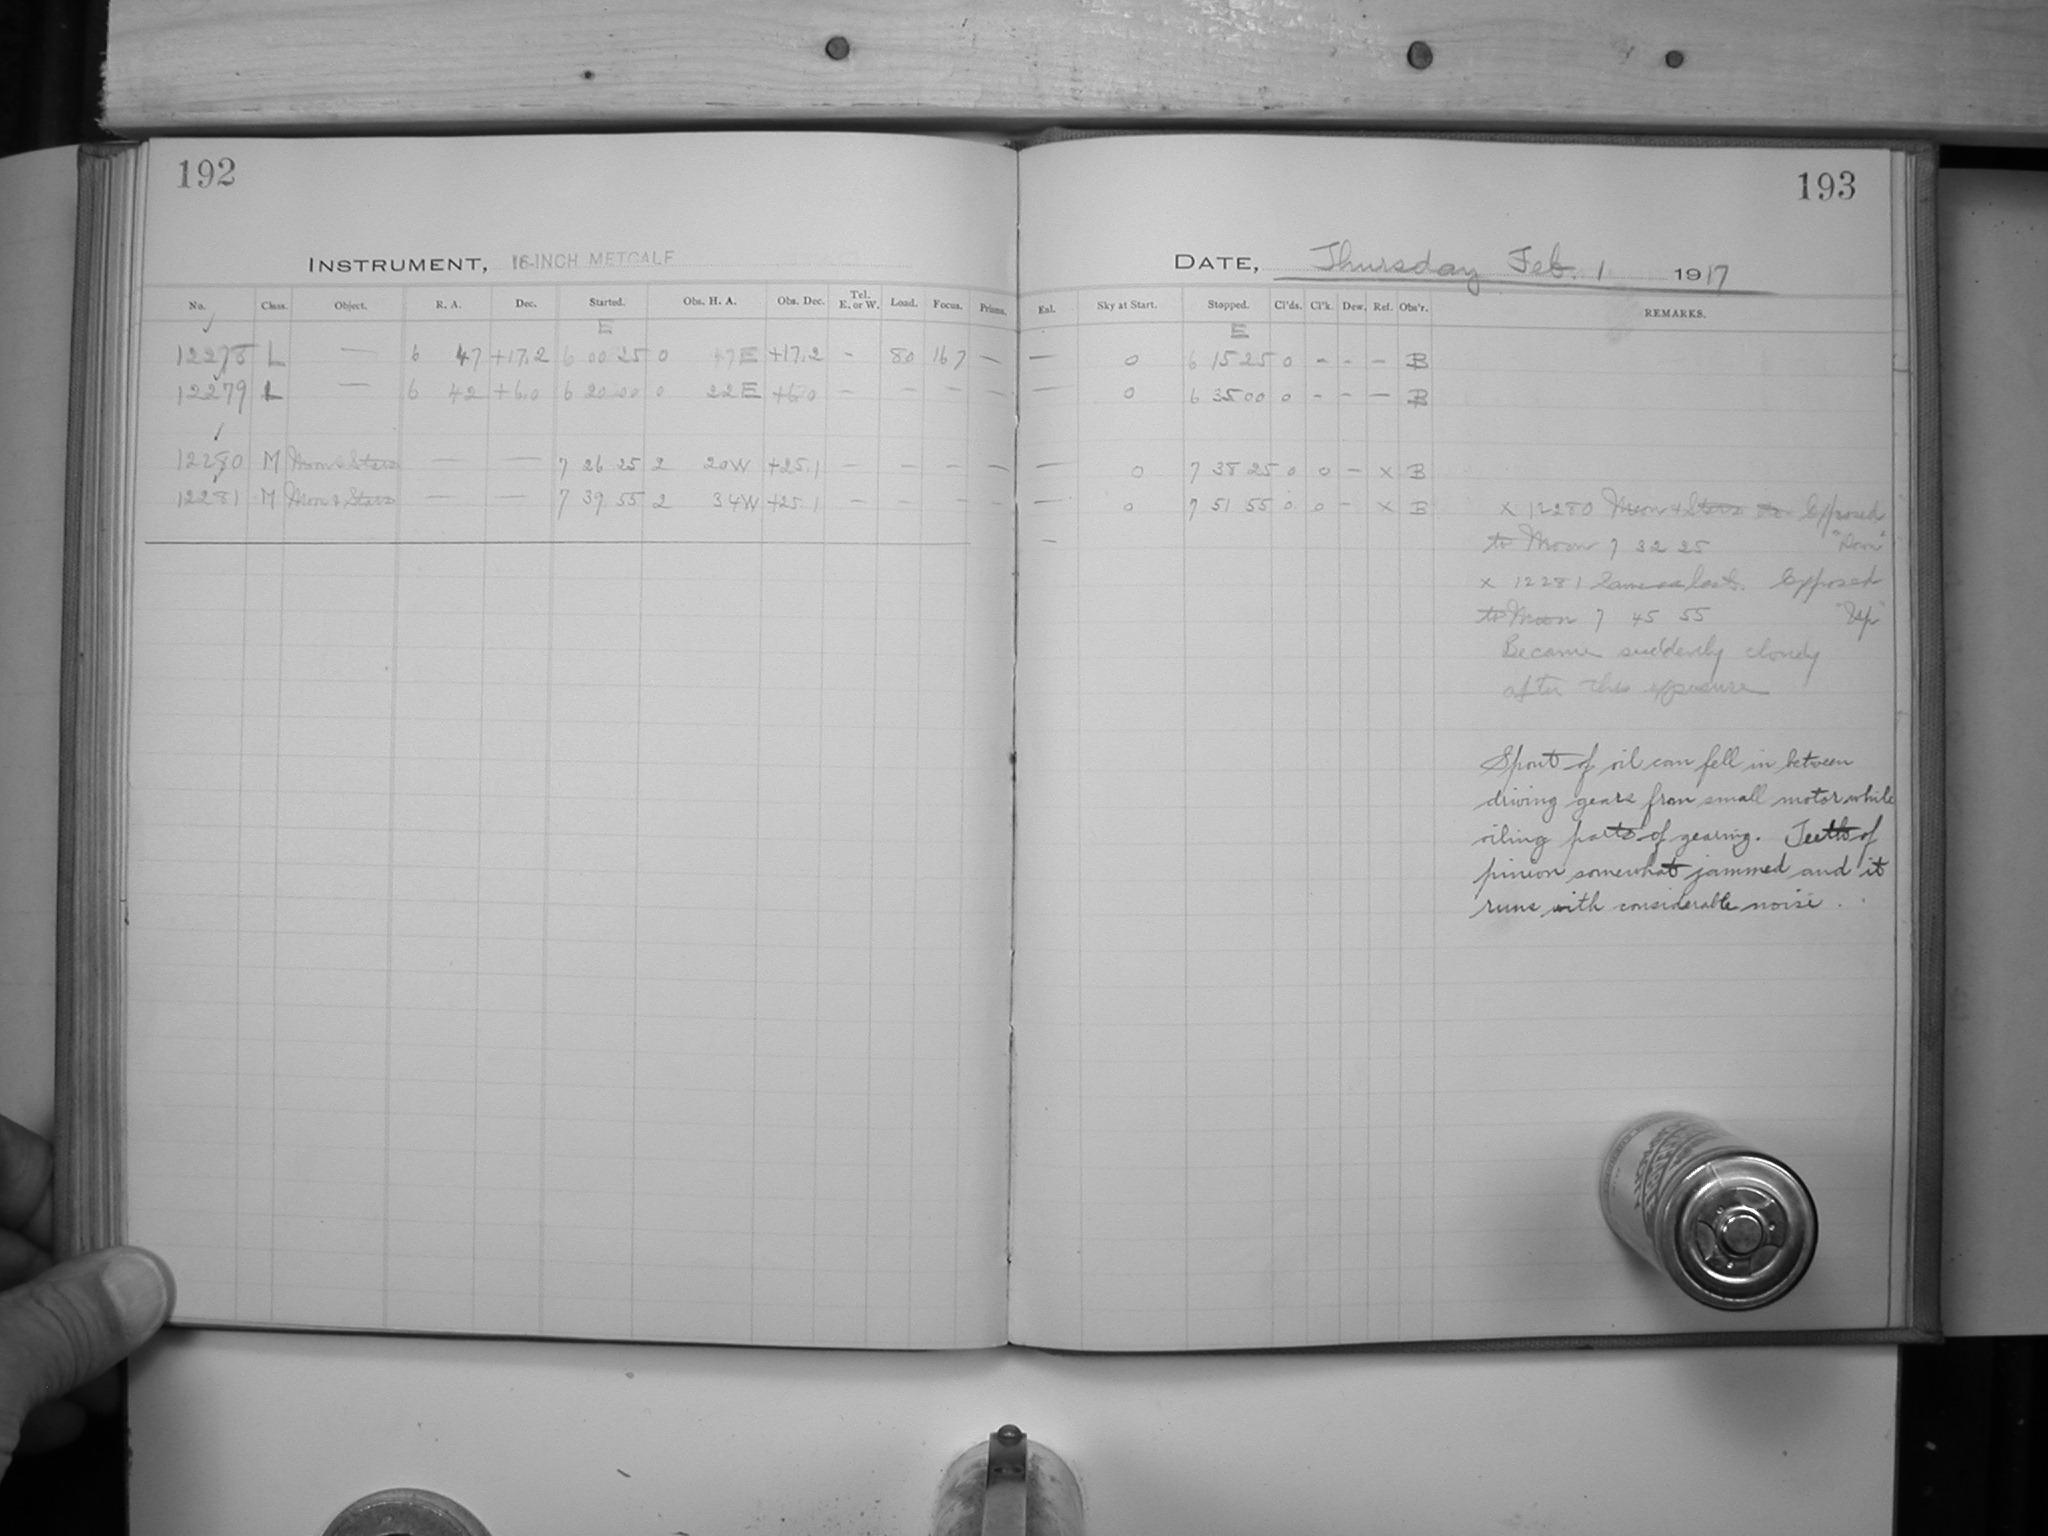 192
193
INSTRUMENT, 16-INCH METCALF
DATE, Thursday Feb. 1 1917
No. Class. Object. R. A. Dec. Started. Obs. H. A. Obs. Dec. Tel. E. or W. Load. Focus. Prisms. Enl. Sky at Start. Stopped. Cl'ds. Cl'k. Dew. Ref. Obs'r. REMARKS.
E E
12278 L — 6 47 +17.2 6 00 25 0 47 E +17.2 - 80 16 7 — — 0 6 15 25 0 - - - B
12279 L — 6 42 +6.0 6 20 00 0 22 E +6.0 — — — — — 0 6 35 00 0 - - — B
12280 M Moon & Stars — — 7 26 25 2 20 W +25.1 — — — — — 0 7 38 25 0 0 — x B
12281 M Moon & Stars — — 7 39 55 2 34 W +25.1 — — — — — 0 7 51 55 0 0 - x B
x 12280 Moon & Stars Exposed
to Moon 7 32 25 "Down"
x 12281 Same as last. Exposed
to Moon 7 45 55 "Up"
Became suddenly cloudy
after this exposure
Spout of oil can fell in between
driving gears from small motor while
oiling parts of gearing. Teeth of
pinion somewhat jammed and it
runs with considerable noise.